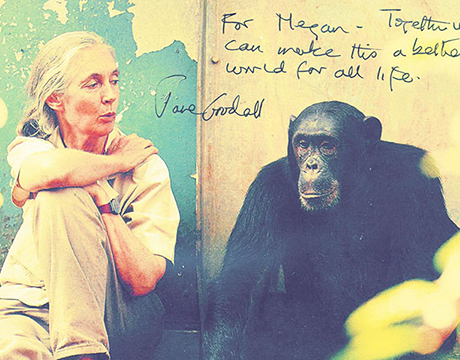 For Megan - Together w
can make this a bette
world for all life.
Jane Goodall